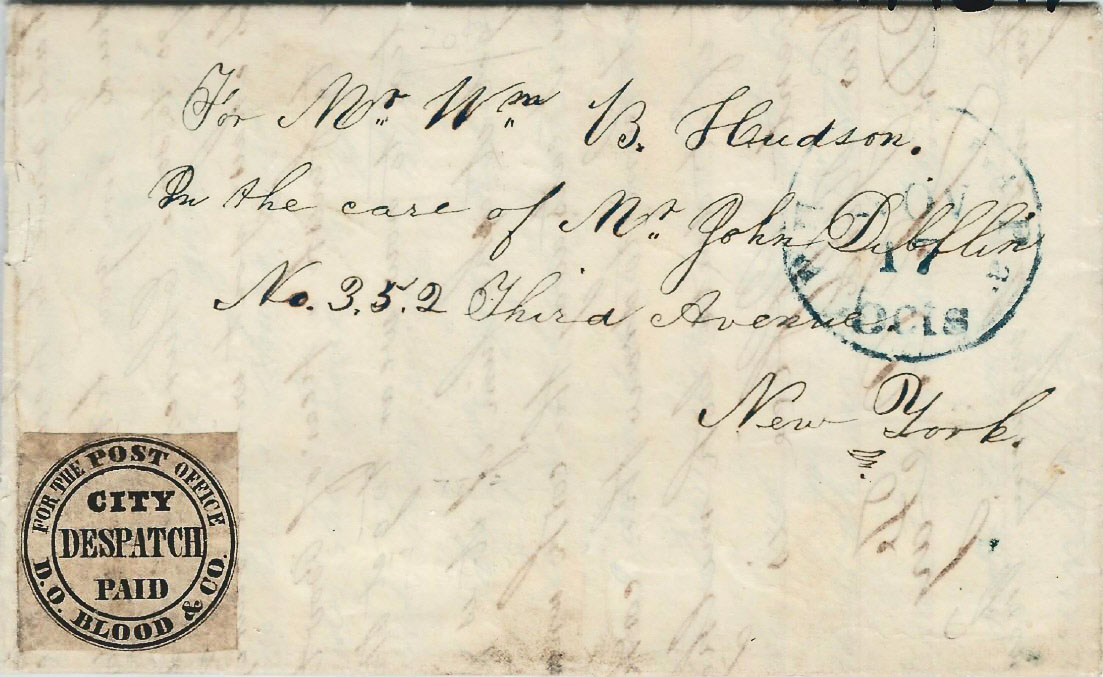 For Mr. Wm B. Hudson.
In the care of Mr. John
No. 3.5.2 Third Avenue
New York.
17
5 cts
FOR THE POST OFFICE
CITY
DESPATCH
PAID
D.O. BLOOD & CO.